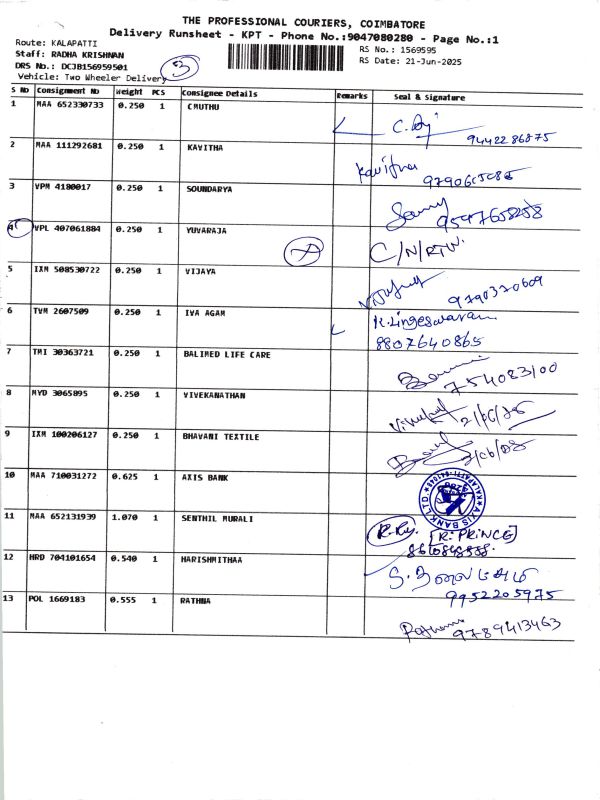 THE PROFESSIONAL COURIERS, COIMBATORE
Delivery Runsheet - KPT - Phone No.:9047080280 - Page No.:1
Route: KALAPATTI
Staff: RADHA KRISHNAN
DRS No.: DCJB156959501
Vehicle: Two Wheeler Delivery
3
RS No.: 1569595
RS Date: 21-Jun-2025
S No Consignment No Weight PCS Consignee Details Remarks Seal & Signature
1 MAA 652330733 0.250 1 CMUTHU
9442286875
2 MAA 111292681 0.250 1 KAVITHA Kavitha
3 VPM 4180017 0.250 1 SOUNDARYA
4 VPL 407061884 0.250 1 YUVARAJA C/N/RTN.
5 IXM 508530722 0.250 1 VIJAYA
9790370609
6 TVM 2607509 0.250 1 IVA AGAM K.Lingeswaran
8807640865
7 TMI 30363721 0.250 1 BALIMED LIFE CARE
8 MYD 3065895 0.250 1 VIVEKANATHAN
9 IXM 100206127 0.250 1 BHAVANI TEXTILE
10 MAA 710031272 0.625 1 AXIS BANK AXIS BANK LTD
11 MAA 652131939 1.070 1 SENTHIL MURALI [R. PRINCE]
12 HRD 704101654 0.540 1 HARISHMITHAA
9952205975
13 POL 1669183 0.555 1 RATHNA
9789413463